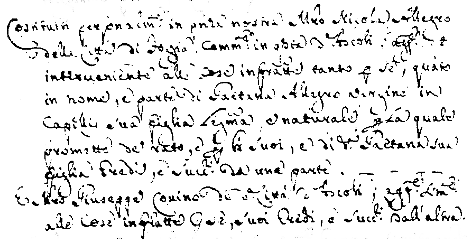 Costituti personalm.te in pnza nostra Mro Nicola Allegro
della Città di Foggia Comm. in Ascoli; agg. et
interveniente alle cose infratte tanto p se, quāto
in nome, e parte di Gaetana Allegro vergine in
Capillis sua figlia leg.ma e naturale p la quale
promette de rato, e p li suoi, e di d.a Gaetana sua
figlia Eredi, e succ. da una parte.
E Mro Giuseppe Covino di Città d'Ascoli; agg. sim.te
alle cose infratte p se, suoi Eredi, e succ. dall'altra.